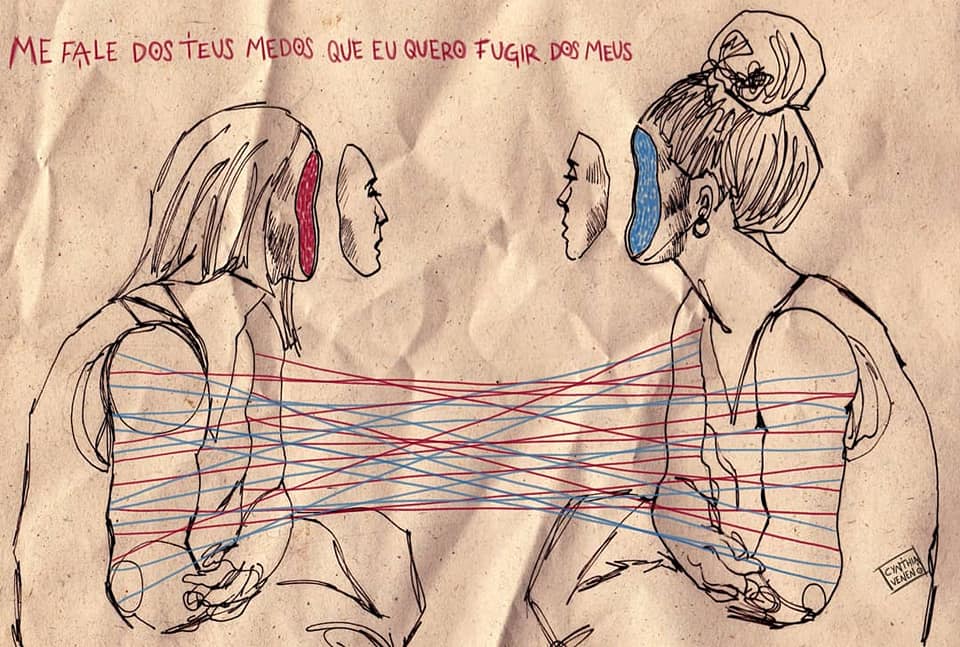 ME FALE DOS TEUS MEDOS QUE EU QUERO FUGIR DOS MEUS
CYNTHIA
VENENO